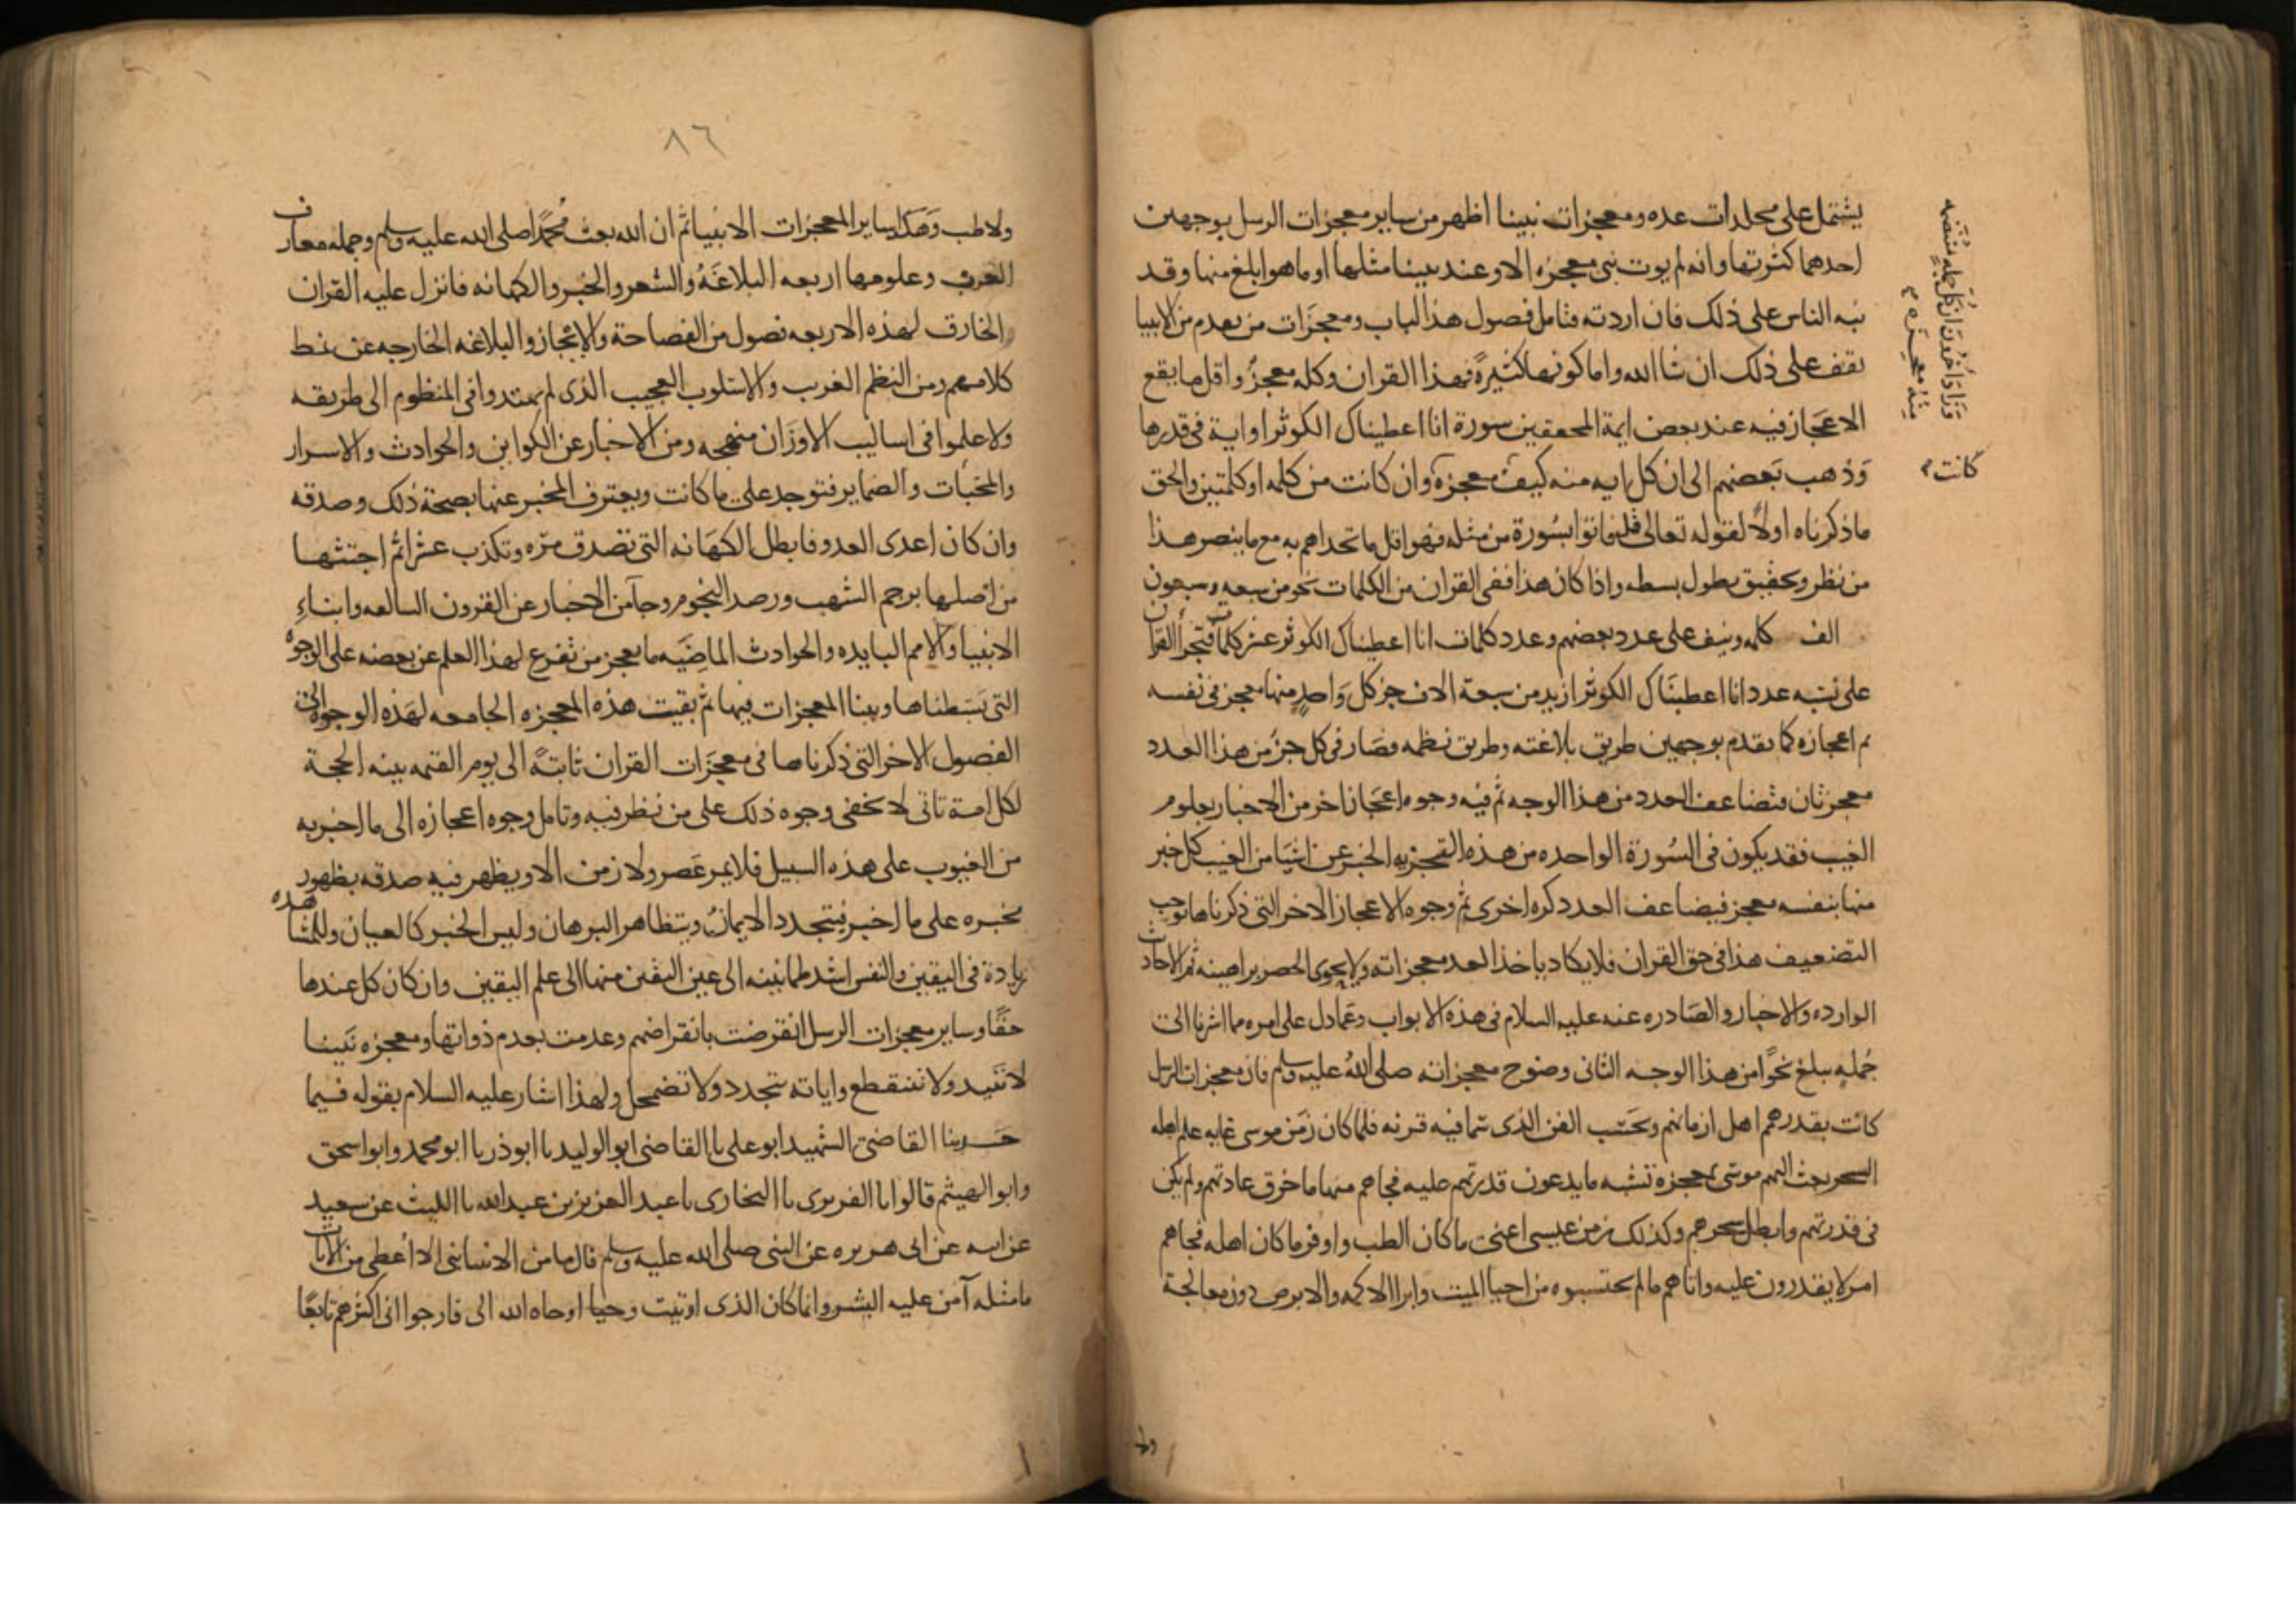 يشتمل على مجلدات عده ومعجزات نبينا اظهر من ساير معجزات الرسل بوجهين
احدهما كثرتها وانه لم يوت نبى معجزه الا وعند نبينا مثلها او ما هو ابلغ منها وقد
نبه الناس على ذلك فان اردته فتامل فصول هذا الباب ومعجزات من تقدم من الانبيا
تقف على ذلك ان شا الله واما كونها كثيرةً فهذا القران وكله معجزٌ واقل ما يقع
الاعجاز فيه عند بعض ايمة المحققين سورة انا اعطيناك الكوثر او اية فى قدرها
وَذهب بعضهم الى ان كل ايه منه كيف معجزة وان كانت من كلمه او كلمتين والحق
كانت
وَزَادَ آخَرُونَ اَنَّ كلَّ جملةٍ منتظمه
مِنْهُ معجِزَه
ما ذكرناه اولاً لقوله تعالى قل فاتوا بسُورة من مثله فهو اقل ما تحداهم به مع ما ينصر هذا
من نظر وتحقيق يطول بسطه واذا كان هذا ففى القران من الكلمات نحو من سبعه وسبعون
الف كلمه ونيف على عدد بعضهم وعدد كلمات انا اعطيناك الكوثر عشر كلمات فتجزأ القران
على نسبه عدد انا اعطيناك الكوثر ازيد من سبعة الاف جز كل واحدٍ منها معجز فى نفسه
ثم اعجازه كما تقدم بوجهين طريق بلاغته وطريق نظمه فصار فى كل جز من هذا العدد
معجزتان فتضاعف العدد من هذا الوجه ثم فيه وجوه اعجاز اخر من الاخبار بعلوم
الغيب فقد يكون فى السُورة الواحده من هذه التجزيه الخبر عن اشيا من الغيب كل خبر
منها بنفسه معجز فيضاعف العدد كره اخرى ثم وجوه الاعجاز الاخر التى ذكرناها توجب
التضعيف هذا فى حق القران فلا يكاد ياخذ العد معجزاته ولا يحوى الحصر براهينه ثم الاحاديث
الوارده والاخبار والصادره عنه عليه السلام فى هذه الابواب وعما دل على امره مما اشرنا الى
جُمله يبلغ نحوًا من هذا الوجه الثانى وضوح معجزاته صلى اللهُ عليه وسلم فان معجزات الرسل
كانت بقدر همم اهل ازمانهم وبحَسب الفن الذى سما فيه قرنه فلما كان زمن موسى غايه علم اهله
السحر بعث اليهم موسى بمعجزة تشبه ما يدعون قدرتهم عليه فجاهم منها ما خرق عادتهم ولم يكن
فى قدرتهم وابطل سحرهم وكذلك زمن عيسى اغنى ما كان الطب واوفر ما كان اهله فجاهم
امر لا يقدرون عليه واتاهم ما لم يحتسبوه من احيا الميت وابرا الاكمه والابرص دون معالجة
ولا
٨٦
ولا طب وهكذا ساير المعجزات الانبيا ثم ان الله بعث محمَّدًا صلى الله عليه وسلم وجمله معارف
العرب وعلومها اربعه البلاغَةُ والشعر والخبر والكهانه فانزل عليه القران
الخارق لهذه الاربعه فصول من الفصاحة والايجاز والبلاغه الخارجه عن نمط
كلامهم ومن النظم الغرب والاسلوب العجيب الذى لم يهتدوا فى المنظوم الى طريقه
ولا علموا فى اساليب الاوزان منهجه ومن الاخبار عن الكواين والحوادث والاسرار
والمخبات والضماير فتوجد على ما كانت ويعترف المخبر عنها بصحة ذلك وصدقه
وان كان اعدى العدو فابطل الكهَانه التى تصدق مرّه وتكذب عشرا ثم اجتثها
من اصلها برجم الشهب ورصد النجوم وجا من الاخبار عن القرون السالفه وانباءِ
الانبيا والامم البايده والحوادث الماضيَه ما يعجز من تفرغ لهذا العلم عن بعضه على الوجوهُ
التى بسَطناها وبينا المعجزات فيها ثم بقيت هذه المعجزه الجامعه لهَذه الوجوه الى
الفصول الاخر التى ذكرناها فى معجزات القران ثابتةً الى يوم القيمه بينه الحجة
لكل امة تاتى لا تخفى وجوه ذلك على من نظر فيه وتامل وجوه اعجازه الى ما اخبر به
من الغيوب على هذه السبيل فلا يمر عَصر ولا زمن الا ويظهر فيه صدقه بظهور
مخبره على ما اخبر فيتجدد الايمانُ ويتظاهر البرهان وليس الخبر كالعيان وللمشاهده
زيادة فى اليقين والنفس اشد طمانينه الى عين اليقين منها الى علم اليقين وان كان كل عندها
حقًا وساير معجزات الرسل انقرضت بانقراضهم وعدمت بعدم ذواتها ومعجزه نَبينا
لا تبيد ولا تنقطع واياته تتجدد ولا تضمحل ولهذا اشار عليه السلام بقوله فيما
حدثنا القاضى الشهيد ابو على نا القاضى ابو الوليد نا ابو ذر نا ابو محمد وابو اسحق
وابو الهيثم قالوا نا الفربرى نا البخارى نا عبد العزيز بن عبد الله نا الليث عن سعيد
عن ابيه عن ابى هريره عن النبى صلى الله عليه وسلم قال ما من الانبيا نبى الا اُعطى من الايات
ما مثله آمن عليه البشر وانما كان الذى اوتيت وحيا اوحاه الله الى فارجوا انى اكثرهم تابعًا